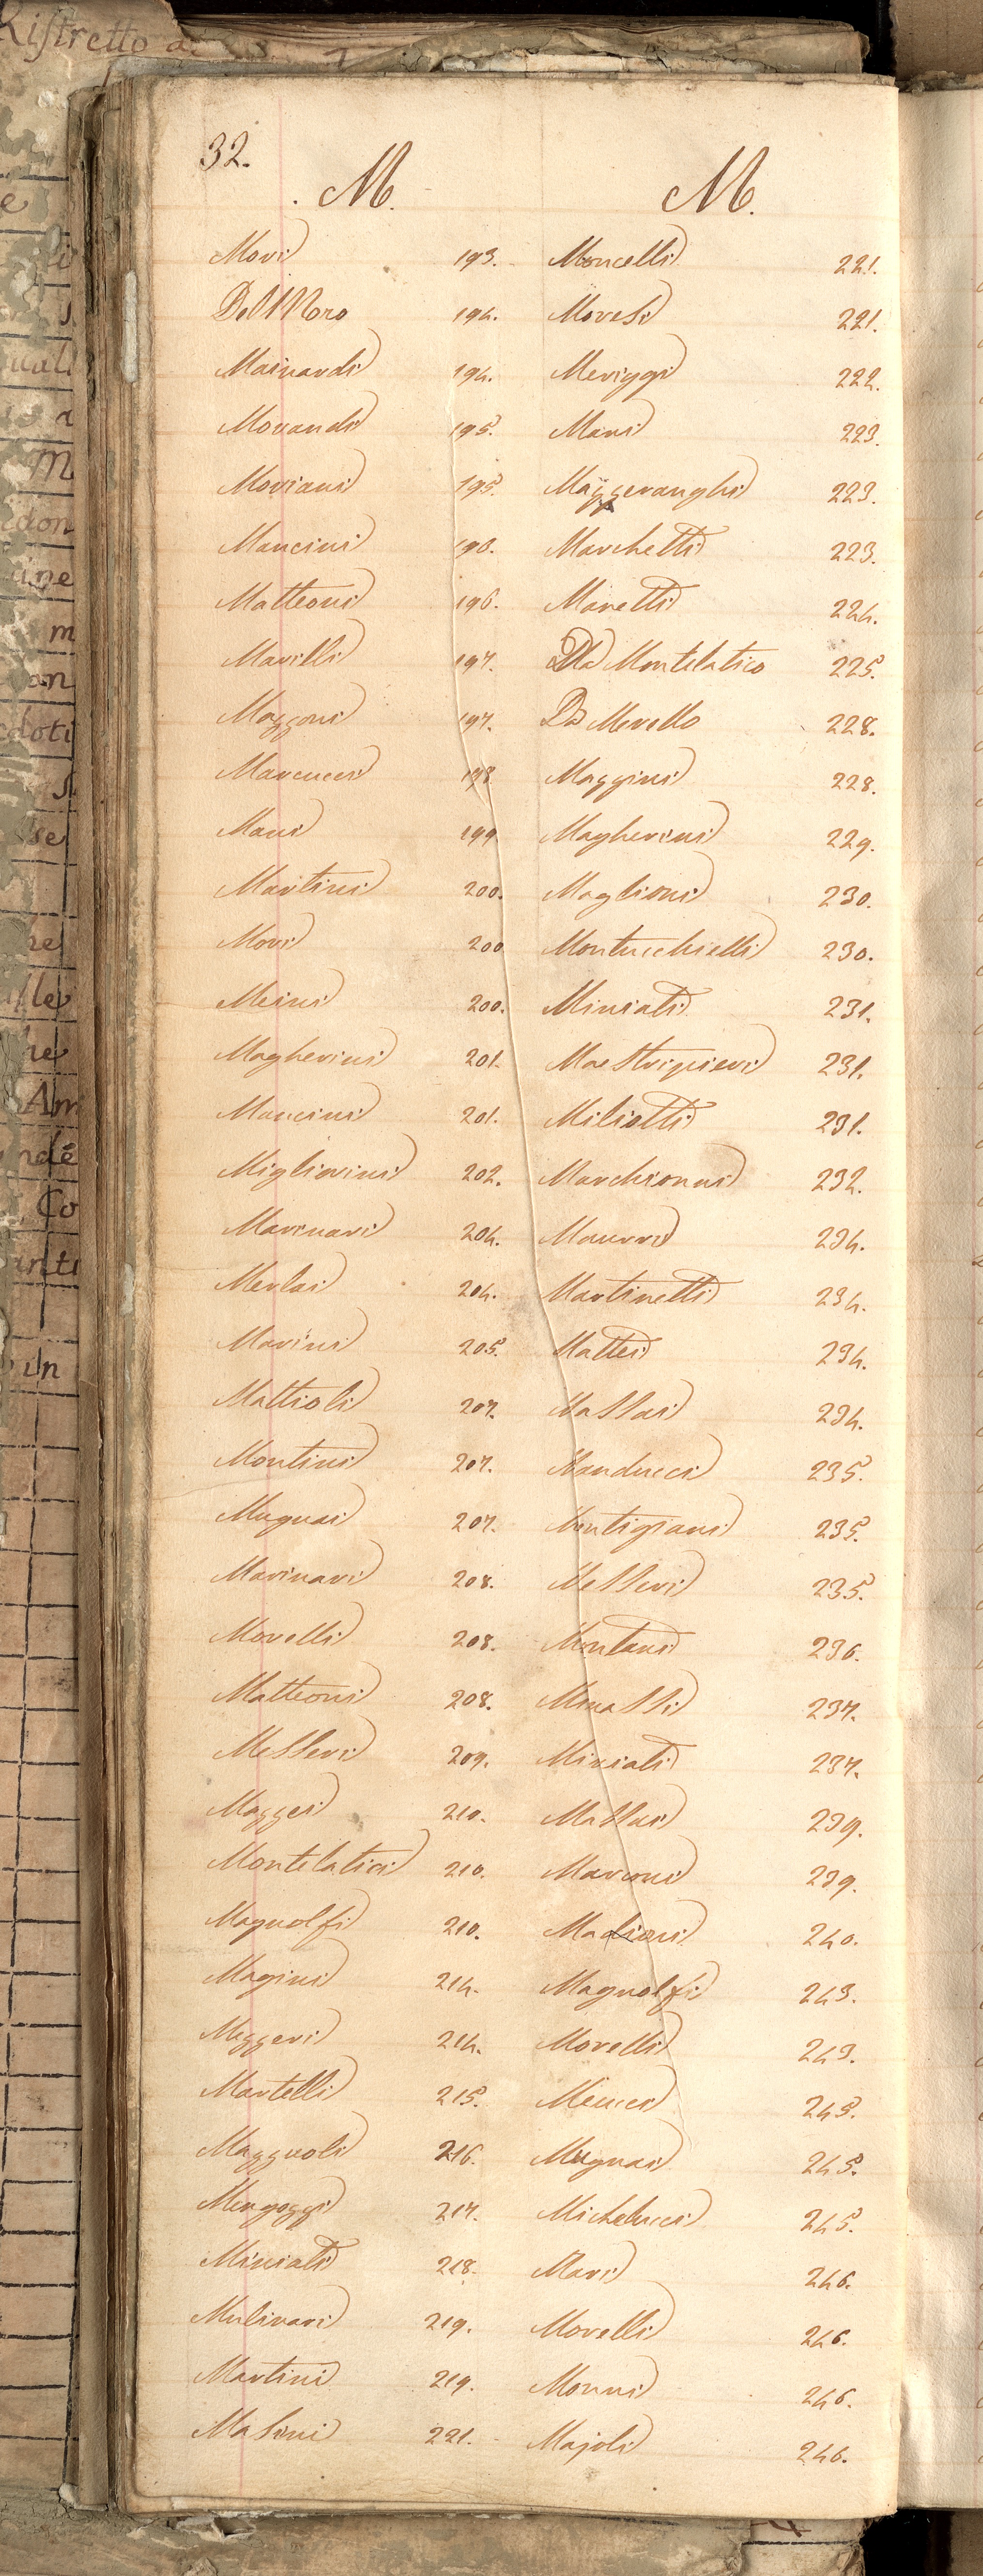 Ristretto
32.
M. M.
Mori 193.
Del Moro 194.
Mainardi 194.
Morandi 195.
Moriani 195.
Mancini 196.
Matteoni 196.
Marilli 197.
Mazzoni 197.
Marcucci 198
Mani 199
Martini 200.
Mori 200
Meini 200.
Magherini 201.
Mancini 201.
Migliorini 202.
Marinari 204.
Merlai 204.
Marini 205.
Mattioli 207.
Montini 207.
Mugnai 207.
Marinari 208.
Morelli 208.
Matteoni 208.
Messeri 209.
Mazzei 210.
Montelatici 210.
Magnolfi 210.
Magini 214.
Mezzeri 214.
Martelli 215.
Mazzuoli 216.
Mengozzi 217.
Miniati 218.
Mulinari 219.
Martini 219.
Masini 221.
Moncelli 221.
Moresi 221.
Meriggi 222.
Mani 223.
Mazzeranghi 223.
Marchetti 223.
Manetti 224.
Da Montelatico 225.
Da Merello 228.
Maggini 228.
Magherini 229.
Maglioni 230.
Montucchielli 230.
Miniati 231.
Maestripieri 231.
Miliotti 231.
Marchionni 232.
Maurri 234.
Martinetti 234.
Mattei 234.
Massai 234.
Manducci 235.
Montigiani 235.
Messeri 235.
Montani 236.
Minassi 237.
Miniati 237.
Massai 239.
Marconi 239.
Maglioni 240.
Magnolfi 243.
Morelli 243.
Meucci 245.
Mugnai 245.
Michelucci 245.
Mari 246.
Morelli 246.
Monni 246.
Majoli 246.